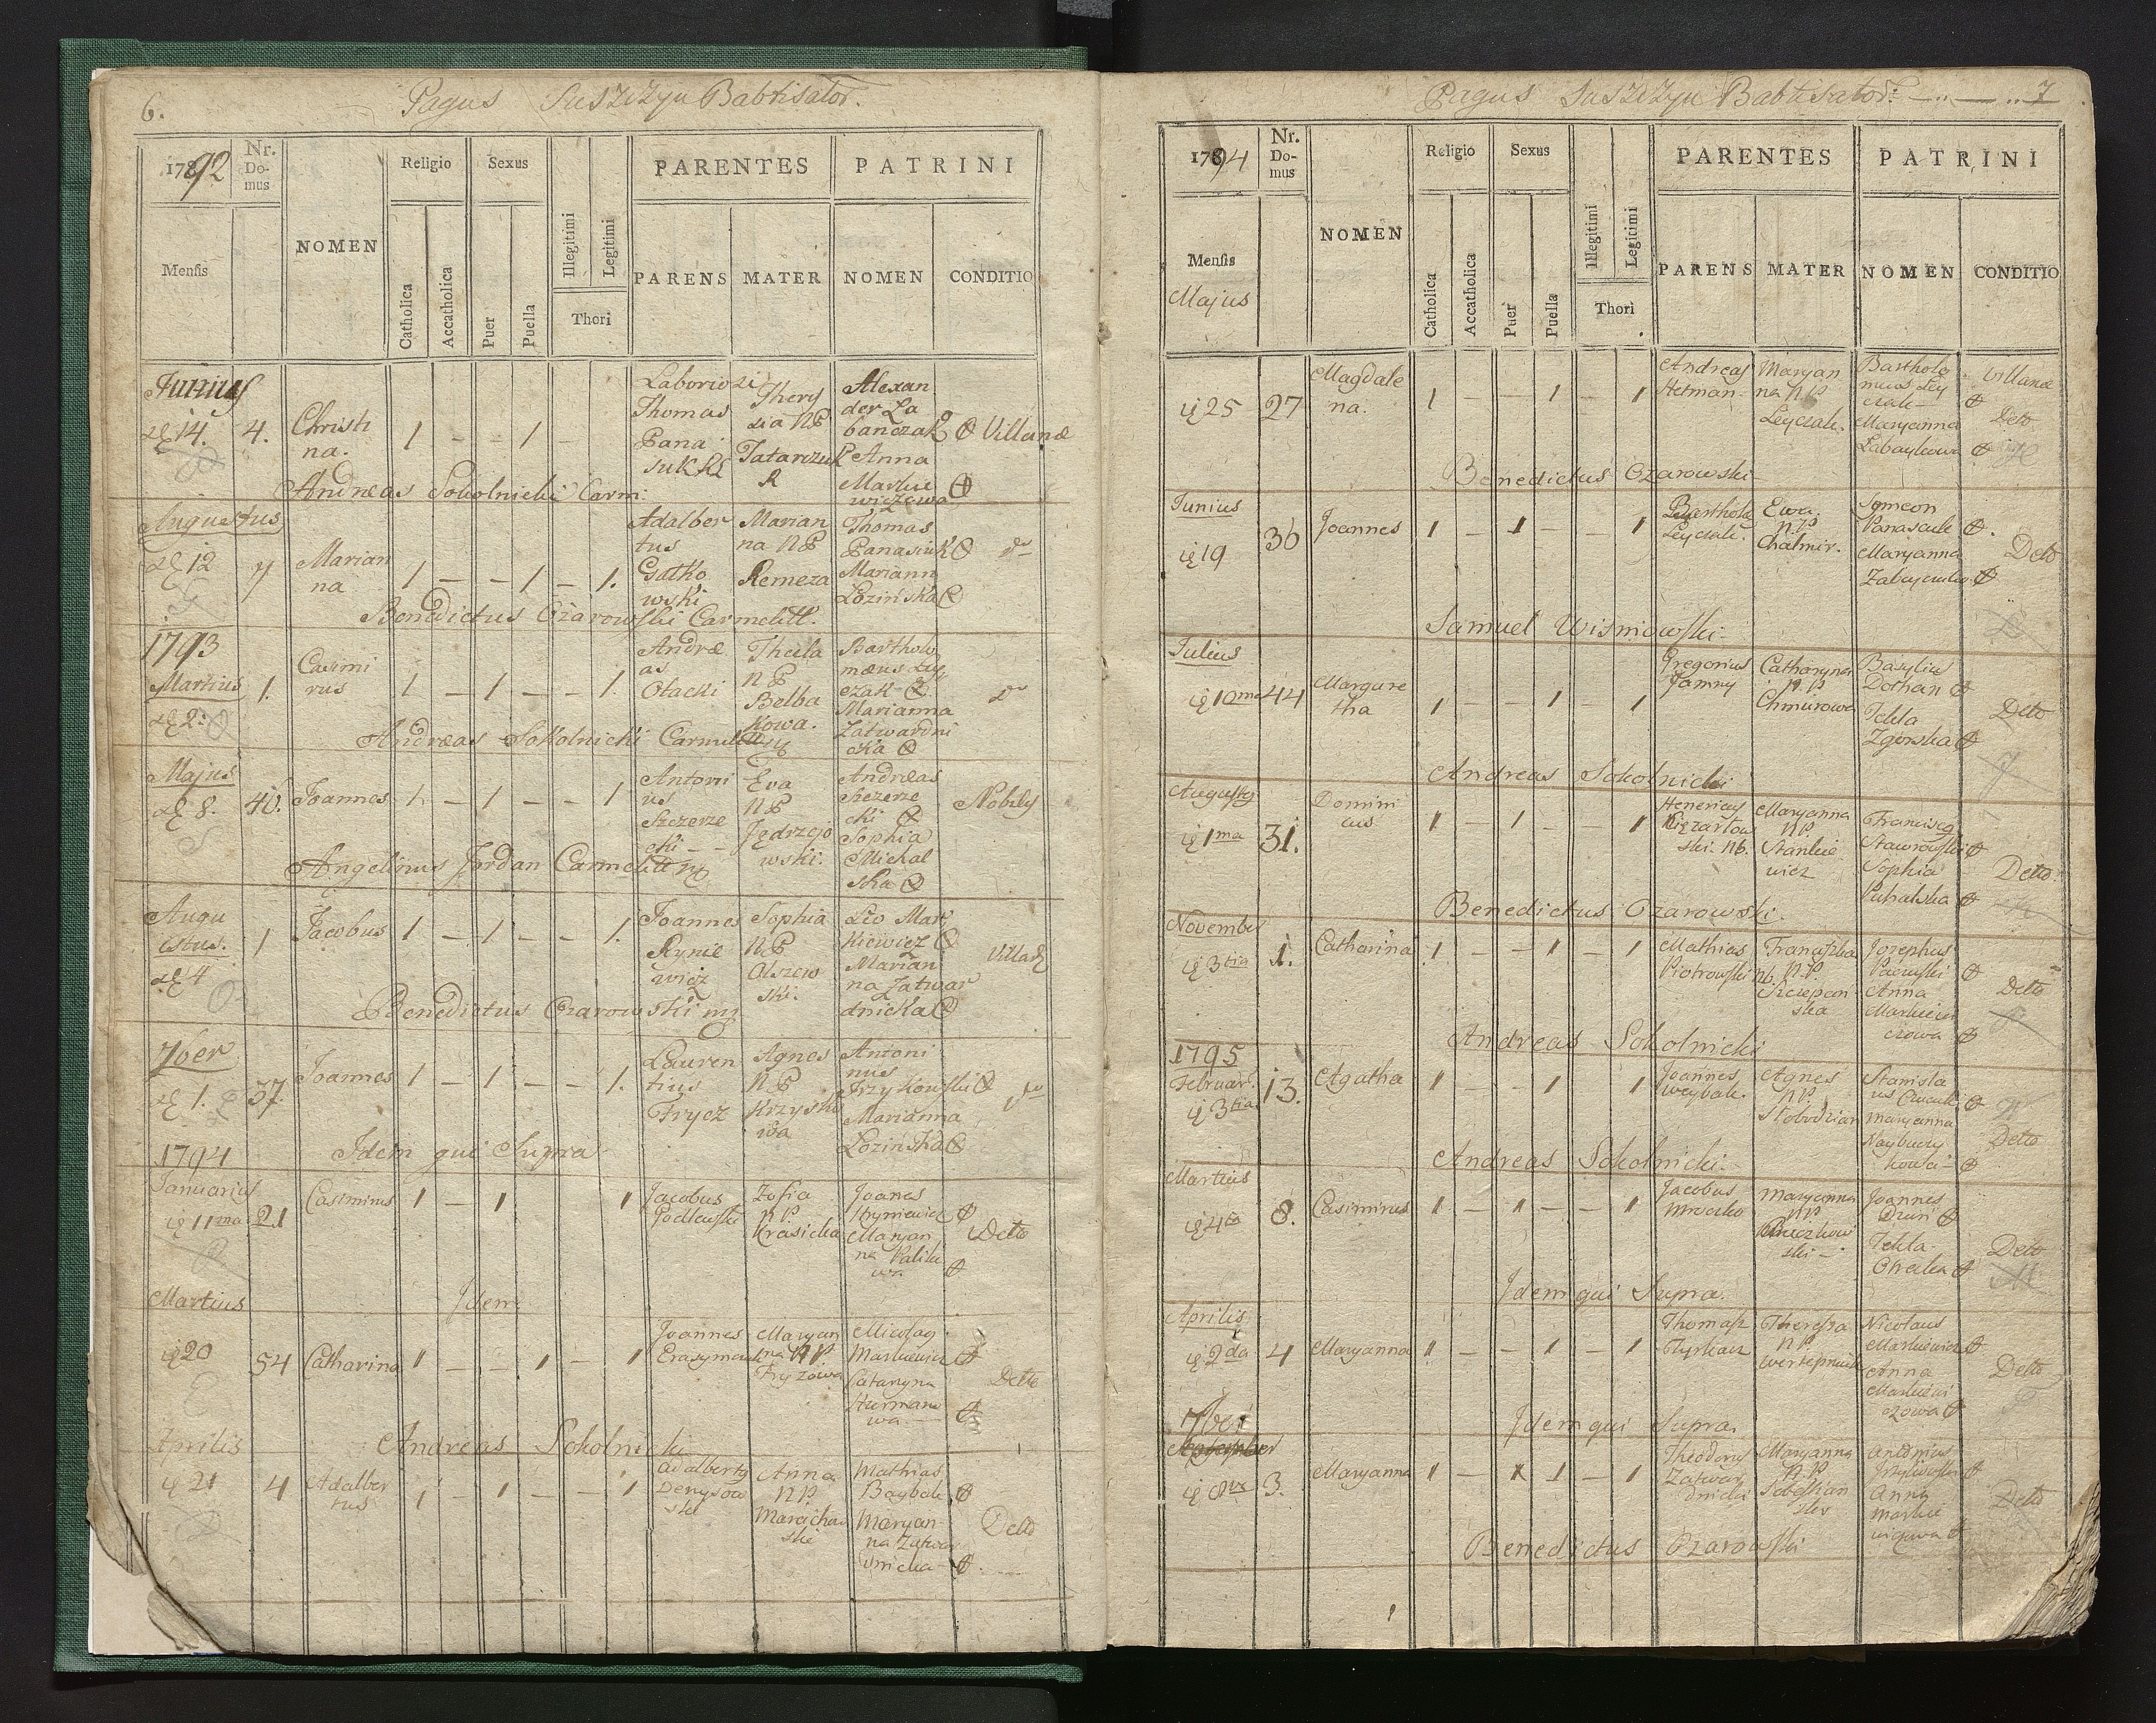 6.
Pagus Suszczyn Babtisator.
1792
Nr. Domus
NOMEN
Religio
Sexus
PARENTES
PATRINI
Mensis
Catholica
Accatholica
Puer
Puella
Illegitimi
Legitimi
Thori
PARENS
MATER
NOMEN
CONDITIO
Junius
14. 4. Christi
na.
1 — — 1 —
Laboriosi
Thomas
Pana
suk
There
sia NP
Tatarczuk
Alexan
der La
banczak
Anna
Markie
wiczowa
Villanæ
Andreas Sokolnicki Carm:
Augustus
12 7 Marian
na
1 — — 1 — 1.
Adalber
tus
Gutko
wski
Marian
na NP
Remeza
Thomas
Panasiuk
Mariann
Lozińska
Benedictus Czarowski Carmelitt.
1793
Martius
2. 1. Casimi
rus
1 — 1 — — 1.
Andre
as
Otacki
Thecla
NP
Belba
kowa.
Bartholo
mæus
czak
Marianna
Zatwardni
cka
Andreas Sokolnicki Carmelitt
Majus
8. 40. Joannes
1 — 1 — — 1
Antoni
us
Szczerze
cki —
Eva
NP
Jędrzejo
wski.
Andreas
Szczerze
cki
Sophia
Michal
ska
Nobiles
Angelinus Jordan Carmelitt
Augu
stus.
4 1 Jacobus
1 — 1 — — 1.
Joannes
Rynie
wicz
Sophia
NP
Olszew
ski.
Leo Mar
kiewicz
Marian
na Zatwar
dnicka
Benedictus Czarowski
7ber
1. 37. Joannes
1 — 1 — — 1.
Lauren
tius
Frycz
Agnes
NP
Krzysko
wa
Antoni
nus
Przykowski
Marianna
Lozińska
1794
Idem qui Supra
Januarius
11ma 21 Casimirus
1 — 1 1
Jacobus
Godlewski
Zofia
NP
Krasicka
Joanes
Ryniewicz
Maryan
na
Detto
Martius
Idem
20 54 Catharina
1 — — 1 — 1
Joannes
Maryan
na NP
Fryzowa
Micolay
Markiewicz
Cataryna
Hurmano
wa
Detto
Aprilis
Andreas Sokolnicki
21 4 Adalber
tus
1 — 1 — — 1
Adalbertus
Denysow
ski
Anna
NP
Mathias
Baybak
Maryan
na Zatwar
dnicka
Detto
Pagus Suszczyn Babtisator: — .. — .. 7
1794
Nr. Domus
NOMEN
Religio
Sexus
PARENTES
PATRINI
Mensis
Majus
Catholica
Accatholica
Puer
Puella
Illegitimi
Legitimi
Thori
PARENS
MATER
NOMEN
CONDITIO
25 27 Magdale
na.
1 — — 1 — 1
Andreas
Hetman
Maryan
na NP
Leyczak.
Bartholo
meus Ley
czak
Maryanna
Villanæ
Detto
Benedictus Czarowski
Junius
19 36 Joannes
1 — 1 — — 1
Bartholo
Leyczak.
Ewa
NP
Chalmir.
Symeon
Panasiuk
Maryanna
Detto
Samuel Wisniowski
Julius
10ma 44 Margare
tha
1 — — 1 — 1
Gregorius
Jamny
Catharyna
NP
Chmurowa
Basylius
Dothan
Tekla
Zgorska
Detto
Andreas Sokolnicki
Augusty
1ma 31. Domini
cus
1 — 1 — — 1
Henericus
ski. Nb.
Maryanna
NP
Stankie
wicz
Franciscus
Stawrowski
Sophia
Puhalska
Detto
Benedictus Czarowski.
November
3tia 1. Catharina
1 — — 1 — 1
Mathias
Piotrowski nb.
Franciszka
NP.
Szczepan
ska
Jozephus
Anna
Markiewi
czowa
Detto
Andreas Sokolnicki
1795
Februar.
3tia 13. Agatha
1 — — 1 1
Joannes
Weybak.
Agnes
NP.
Slobodzian
Stanisla
us
Maryanna
Naybucy
kowa
Detto
Andreas Sokolnicki.
Martius
4ta 8. Casimirus
1 — 1 — — 1
Jacobus
Mroczko
Maryanna
NP
ski —
Joannes
Dziuń
Tekla
Detto
Idem qui Supra.
Aprilis
2da 4 Maryanna
1 — — 1 — 1
Thomasz
Theressa
NP.
Nicolaus
Markiewicz
Anna
Markiewi
czowa
Detto
Idem qui Supra.
7ber
8va 3. Maryanna
1 — 1 — 1
Theodorus
Zatwar
dnicki
Maryanna
NP
Antonius
Anna
Markie
wiczowa
Detto
Benedictus Czarowski